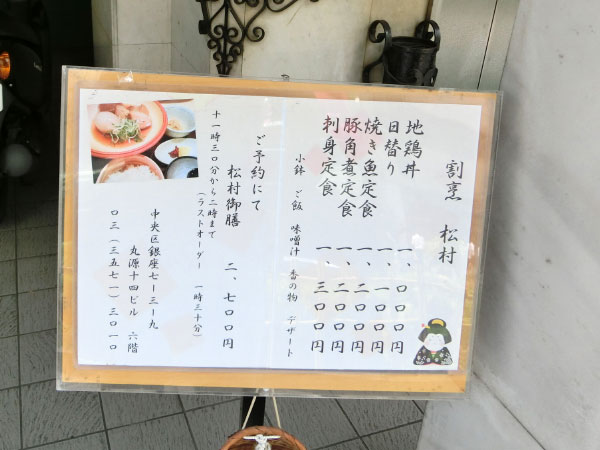 割烹 松村
地鶏丼 一、〇〇〇円
日替り 一、一〇〇円
焼き魚定食 一、二〇〇円
豚角煮定食 一、二〇〇円
刺身定食 一、三〇〇円
小鉢 ご飯 味噌汁 香の物 デザート
ご予約にて
松村御膳 二、七〇〇円
十一時三〇分から二時まで
(ラストオーダー 一時三十分)
中央区銀座七ー三ー九
丸源十四ビル 六階
〇三(三五七一)三〇一〇